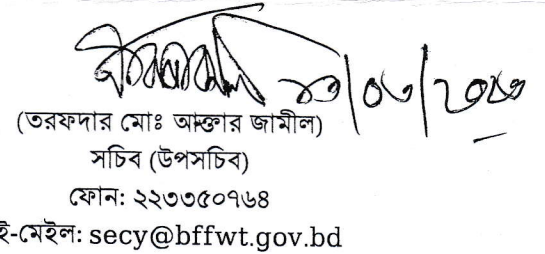 (তরফদার মোঃ আক্তার জামীল)
সচিব (উপসচিব)
ফোন: ২২৩৩৫০৭৬৪
ই-মেইল: secy@bffwt.gov.bd